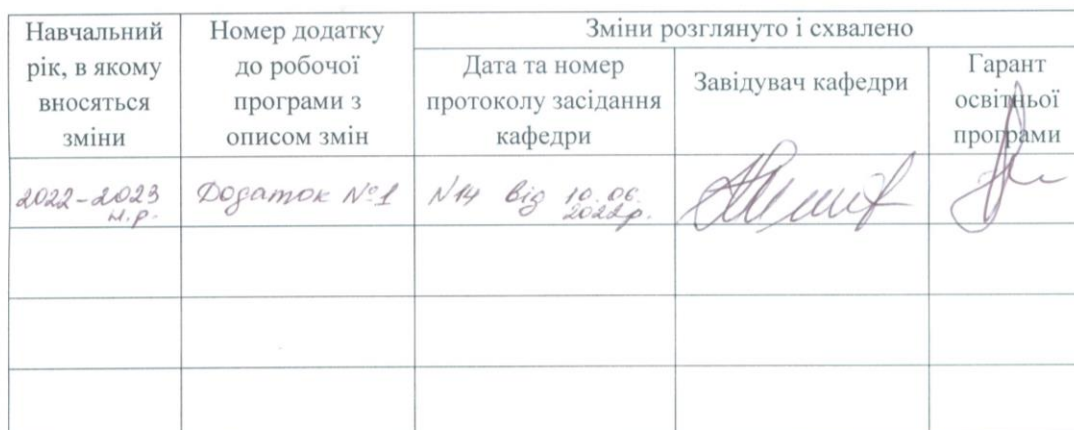 Навчальний рік, в якому вносяться зміни
Номер додатку до робочої програми з описом змін
Зміни розглянуто і схвалено
Дата та номер протоколу засідання кафедри
Завідувач кафедри
Гарант освітньої програми
2022-2023 н.р.
Додаток №1
N14 від 10.06.2022р.